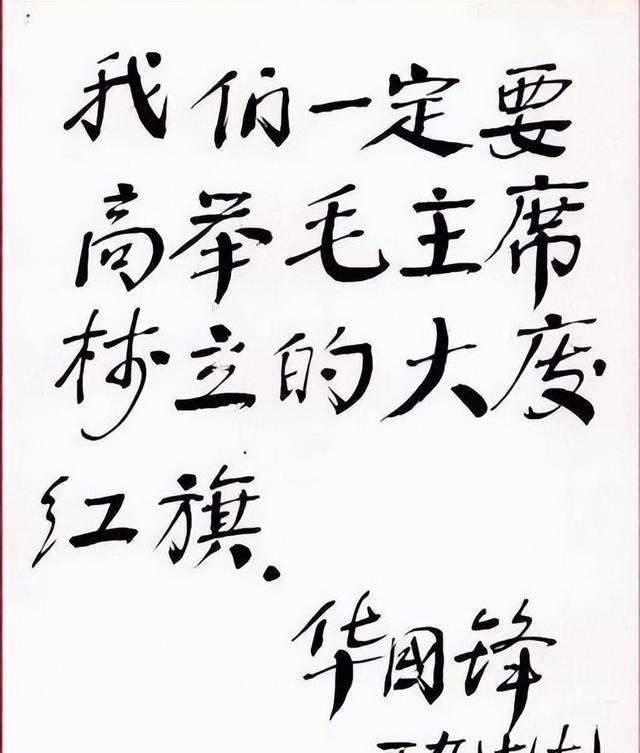 我们一定要
高举毛主席
树立的大庆
红旗.
华國锋